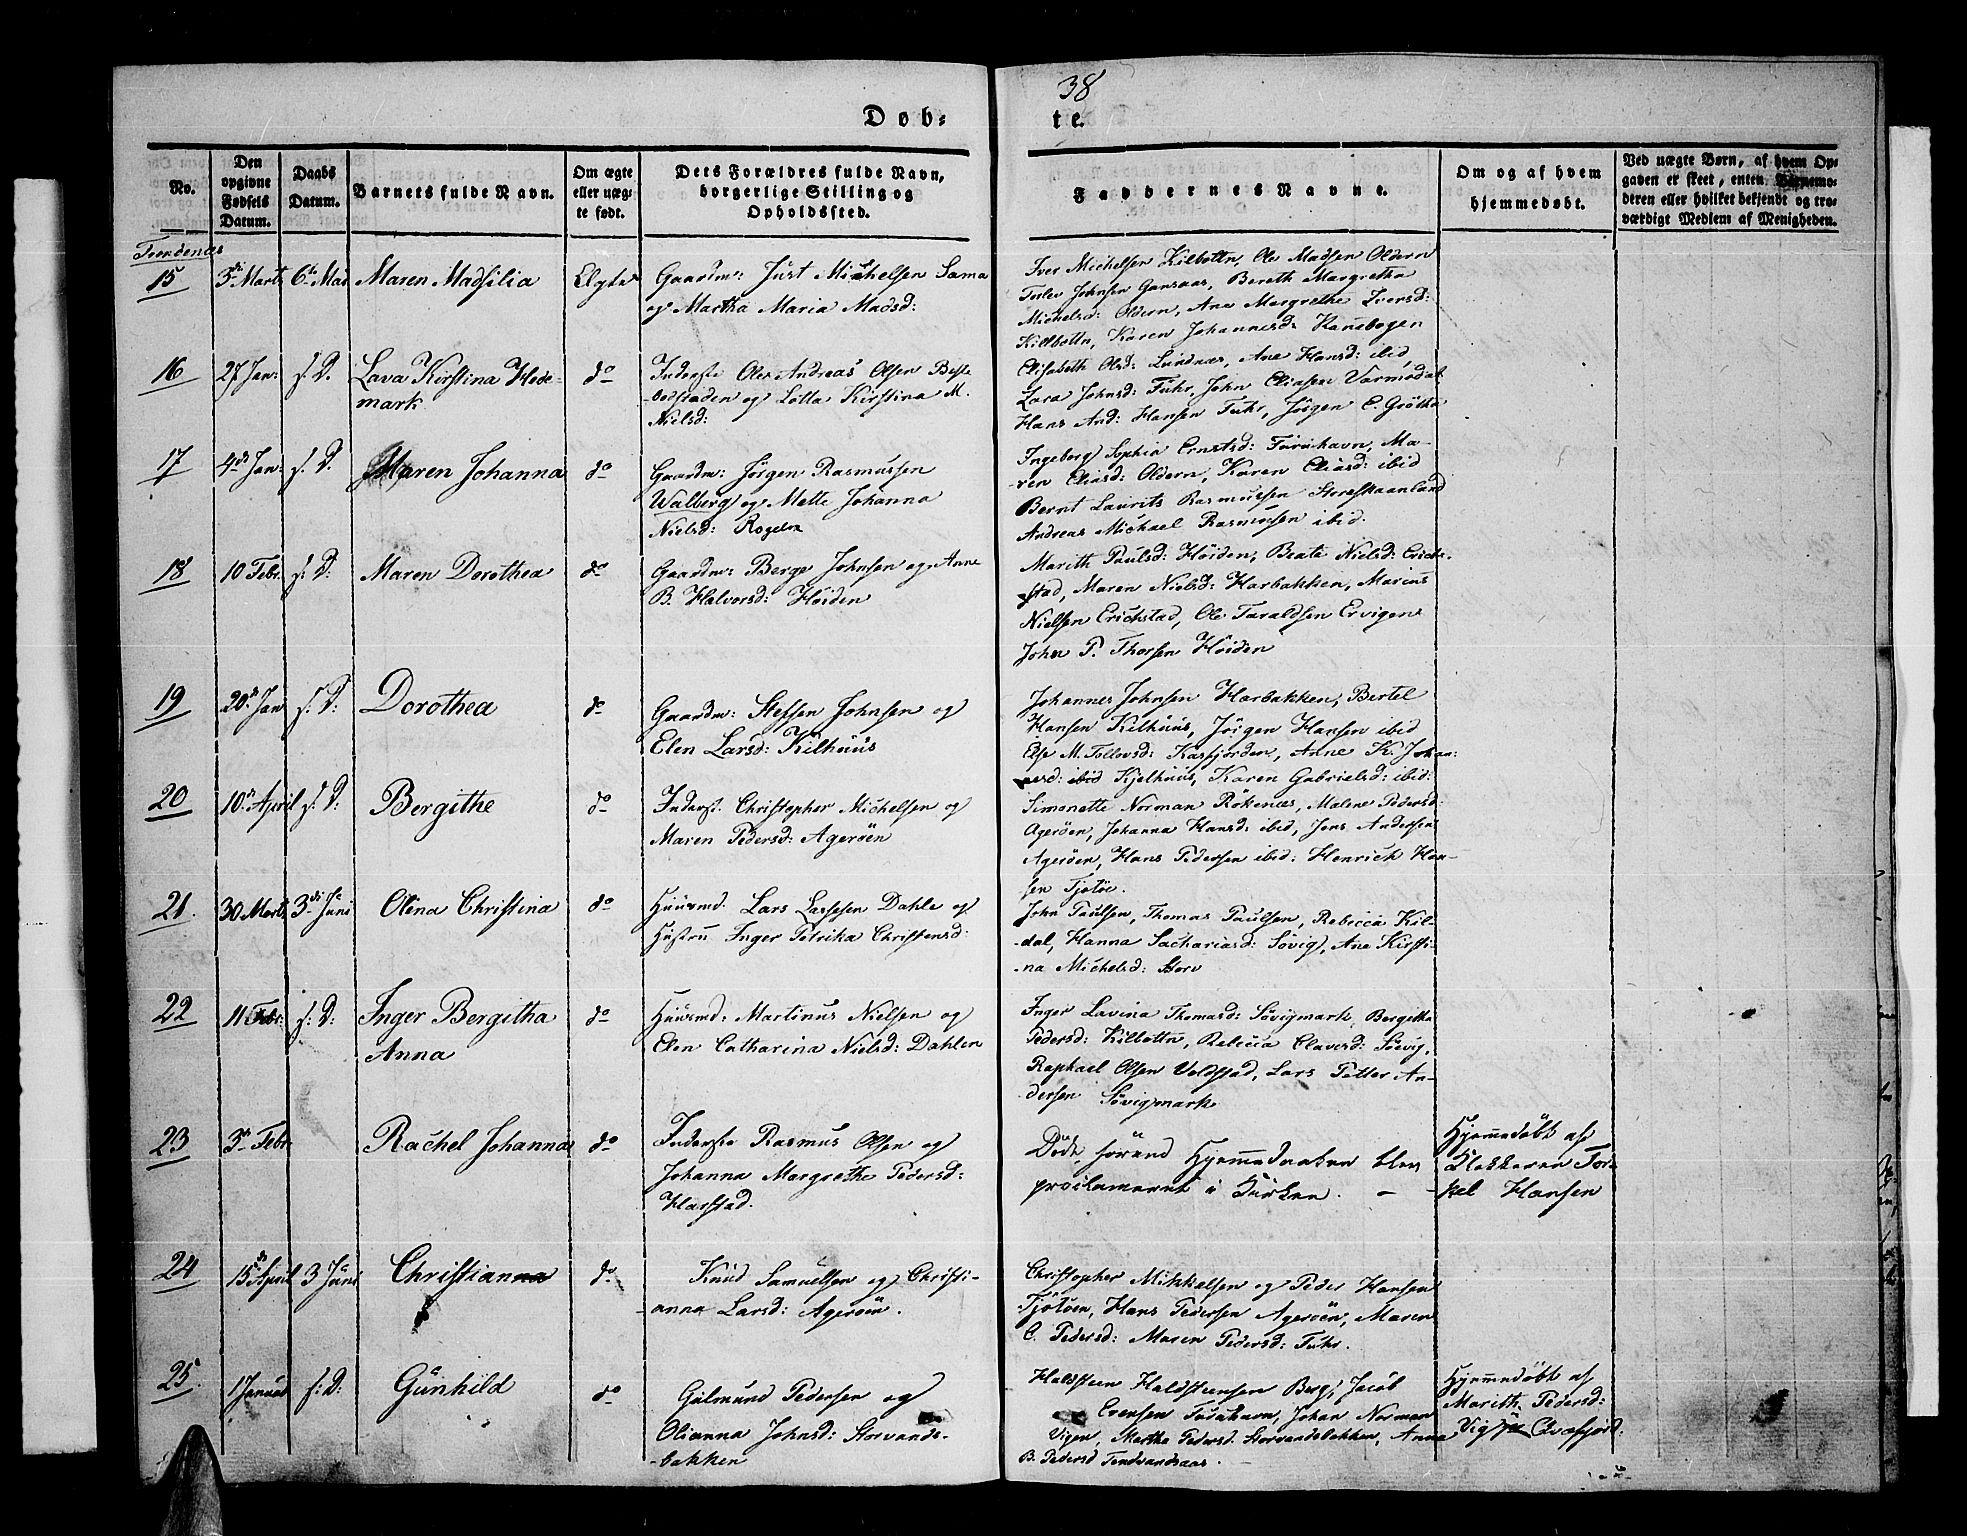 38
Døb-
te.
No.
Den
opgivne
Fødsels
Datum.
Daabs
Datum.
Barnets fulde Navn.
Om ægte
eller uæg-
te født.
Dets Forældres fulde Navn,
borgerlige Stilling og
Opholdssted.
Faddernes Navne.
Om og af hvem
hjemmedøbt.
Ved uægte Børn, af hvem Op-
gaven er skeet, enten Barnemo-
deren eller hvilket bekjendt og tro-
værdigt Medlem af Menigheden.
Trondenæs
15 3di Marts 6te Mai Maren Madsilia Ægte
Gaardm: Just Michelsen Sama
og Martha Maria Madsd:
Iver Michelsen Kilbottn, Ole Madsen Oldern
Torlev Johnsen Gansaas, Bereth Margretha
Michelsd: Oldern, Ane Margrethe Iversd:
Killbottn, Karen Johannesd: Kanebogen
16 27 Jan: s. D. Lava Kirstina Hede-
mark
do
Inderste Ole Andreas Olsen
og Lolla Kirstina M.
Nielsd:
Elisabeth Olsd: Lundnæs, Ane Hansd: ibid,
Lara Johnsd: Fuhr, John Eliasen
Hans And: Hansen Fuhr, Jørgen C. Grøtha
17 4de Jan: s. D. Maren Johanna do
Gaardm: Jørgen Rasmussen
Walberg og Mette Johanna
Nielsd:
Ingeborg Sophia Ernstsd: Faruhavn, Ma-
-ren Eliasd: Oldern, Karen Eliasd: ibid
Bernt Laurits Rasmussen Storeskaanland
Andreas Michael Rasmusen ibid.
18 10 Febr. s: D: Maren Dorothea do
Gaardm: Berge Johnsen og Anne
B. Halvorsd: Høiden
Marith Paulsd: Høiden, Beate Nielsd: Erich-
stad, Maren Nielsd: Harbakken, Marius
Nielsen Erichstad, Ole Taraldsen Ervigen
John P. Thorsen Høiden
19 20de Jan s. D: Dorothea do
Gaardm: Steffen Johnsen og
Elen Larsd: Kilhuus
Johannes Johnsen Harbakken, Bertel
Hansen Kilhuus, Jørgen Hansen ibid
Else M. Tollevsd: Kasfjorden, Anne K. Johan-
nesd: ibid Kjelhuus, Karen Gabrielsd: ibid:
20 10de April s. D: Bergithe do
Inderst. Christopher Michelsen og
Maren Pedersd: Agerøen
Simonette Norman Røkenes, Malene Pedersd:
Agerøen, Johanna Hansd: ibid, Jens Andersen
Agerøen, Hans Pedersen ibid: Henrich Han-
sen Tjotøe.
21. 30 Marts 3di Juni Olina Christina do
Huusmd. Lars Larsesen Dahle og
Hustru Inger Petrika Christensd:
John Paulsen, Thomas Paulsen, Rebecca Kil-
-dal, Hanna Sachariasd: Søvig, Ane Kirsti-
-na Michelsd: Storv
22 11 Febr: s: D: Inger Bergitha
Anna
do
Huusmd: Martinus Nielsen og
Elen Catharina Nielsd: Dahlen
Inger Lavina Thomasd: Søvigmark, Bergitha
Pedersd: Kilbottn, Rebecca Clavesd: Søevig,
Raphael Olsen Voldstad, Lars Petter An-
-dersen Søvigmark
23 3de Febr Rachel Johanna do
Inderste Rasmus Olsen og
Johanna Margrethe Pedersd:
Harstad.
Død, førend Hjemmedaaben blev
proclameret i Kirken.
Hjemmedøbt af
Klokkeren Tor-
kel Hansen
24 15de April 3 Juni Christian do
Knud Samuelsen og Christi-
-anna Larsd: Agerøen.
Christopher Mikkelsen og Peder Hansen
Tjotøen, Hans Pedersen Agerøen, Maren
C. Pedersd: Maren Pedersd: Fuhr.
25. 1 Januar s: D: Gunhild do
Gulmund Pedersen og
Olianna Johnsd: Storvands-
-bakken
Haldsteen Haldsteensen Berg, Jacob
Evensen Farahavn, Johan Norman
Vigen, Martha Pedersd. Storvandsbakken, Anna
B. Pedersd
Hjemmedøbt af
Marith Pedersd: